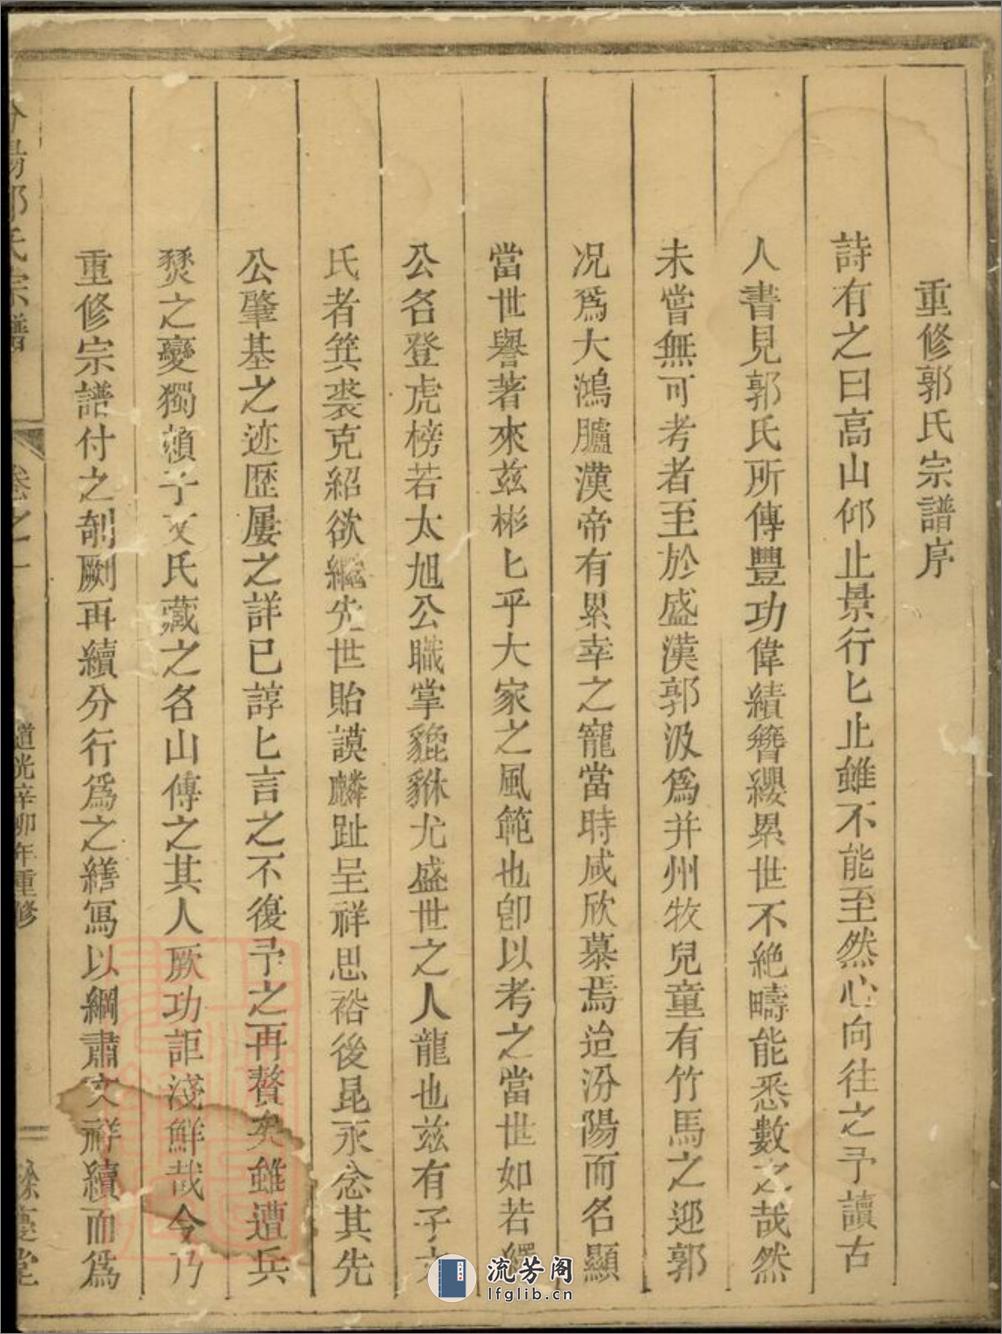 重修郭氏宗譜序
詩有之曰高山仰止景行匕止雖不能至然心向往之予讀古
人書見郭氏所傳豐功偉績簪纓累世不絕疇能悉數之哉然
未嘗無可考者至於盛漢郭汲為并州牧兒童有竹馬之迎郭
况爲大鴻臚漢帝有累幸之寵當時咸欣慕焉迨汾陽而名顯
當世譽著來兹彬匕乎大家之風範也卽以考之當世如若繹
公名登虎榜若太旭公職掌貔貅尤盛世之人龍也兹有子
氏者箕裘克紹欲繼先世貽謨麟趾呈祥思裕後昆永念其先
公肇基之迹歴屢之詳已諄匕言之不復予之再贅矣雖遭兵
燹之變獨賴子文氏藏之名山傳之其人厥功詎淺鮮哉今乃
重修宗譜付之剞劂再續分行爲之繕寫以綱肅文祥續而爲
汾陽郭氏宗譜
卷之一
道光辛卯年重修
堂
流芳阁
lfglib.cn